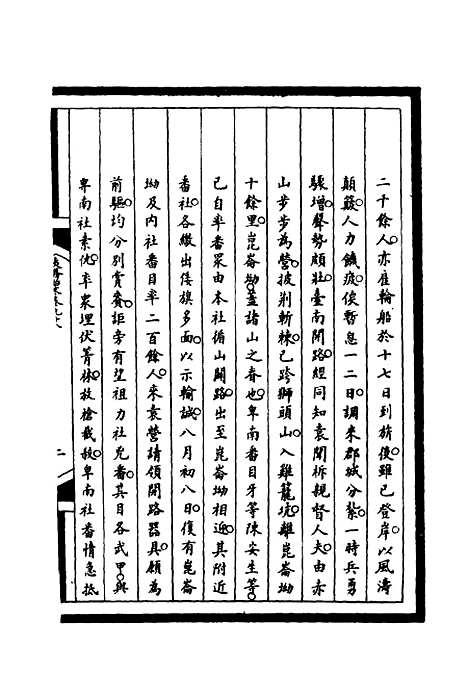 二十餘人亦雇輪船於十七日到旂後雖已登岸以風濤
顛簸人力饑疲俟暫息一二日調來郡城分紮一時兵勇
驟增聲勢頗壯臺南開路經同知袁聞柝親督人夫由赤
山步步為營披荆斬棘已跨獅頭山入雞籠坑離崑崙坳
十餘里崑崙坳蓋諸山之脊也卑南番目牙等陳安生等
已自率番眾由本社循山開路出至崑崙坳相近其附近
番社各繳出倭旗多面以示輸誠八月初八日復有崑崙
坳及內社番目率二百餘人來袁營請領開路器具願為
前驅均分別賞賚詎旁有望祖力社兇番其目各武甲與
卑南社素仇率眾埋伏菁林放槍截殺卑南社番情急抵
二